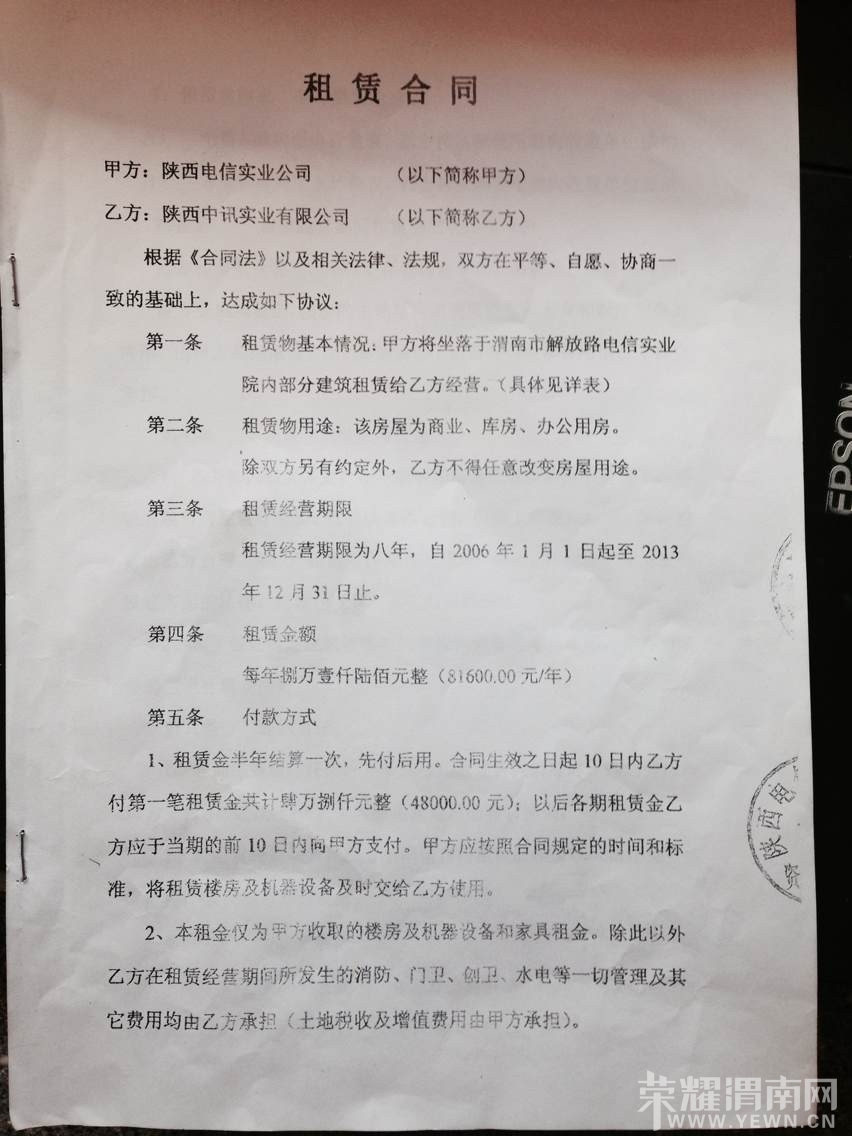 租赁合同
甲方：陕西电信实业公司 （以下简称甲方）
乙方：陕西中讯实业有限公司 （以下简称乙方）
根据《合同法》以及相关法律、法规，双方在平等、自愿、协商一
致的基础上，达成如下协议：
第一条 租赁物基本情况：甲方将坐落于渭南市解放路电信实业
院内部分建筑租赁给乙方经营。（具体见详表）
第二条 租赁物用途：该房屋为商业、库房、办公用房。
除双方另有约定外，乙方不得任意改变房屋用途。
第三条 租赁经营期限
租赁经营期限为八年，自 2006 年 1 月 1 日起至 2013
年 12 月 31 日止。
第四条 租赁金额
每年捌万壹仟陆佰元整（81600.00 元/年）
第五条 付款方式
1、租赁金半年结算一次，先付后用。合同生效之日起 10 日内乙方
付第一笔租赁金共计肆万捌仟元整（48000.00 元）；以后各期租赁金乙
方应于当期的前 10 日内向甲方支付。甲方应按照合同规定的时间和标
准，将租赁楼房及机器设备及时交给乙方使用。
2、本租金仅为甲方收取的楼房及机器设备和家具租金。除此以外
乙方在租赁经营期间所发生的消防、门卫、创卫、水电等一切管理及其
它费用均由乙方承担（土地税收及增值费用由甲方承担）。
EPSON
陕西电
资
荣耀渭南网
WWW.YEWN.CN